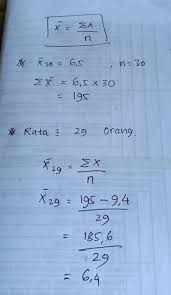 x̄ = Σx/n
* x̄30 = 6,5 , n = 30
Σx̄ = 6,5 × 30
= 195
* Rata² 29 Orang.
x̄29 = Σx/n
x̄29 = 195 − 9,4/29
= 185,6/29
= 6,4